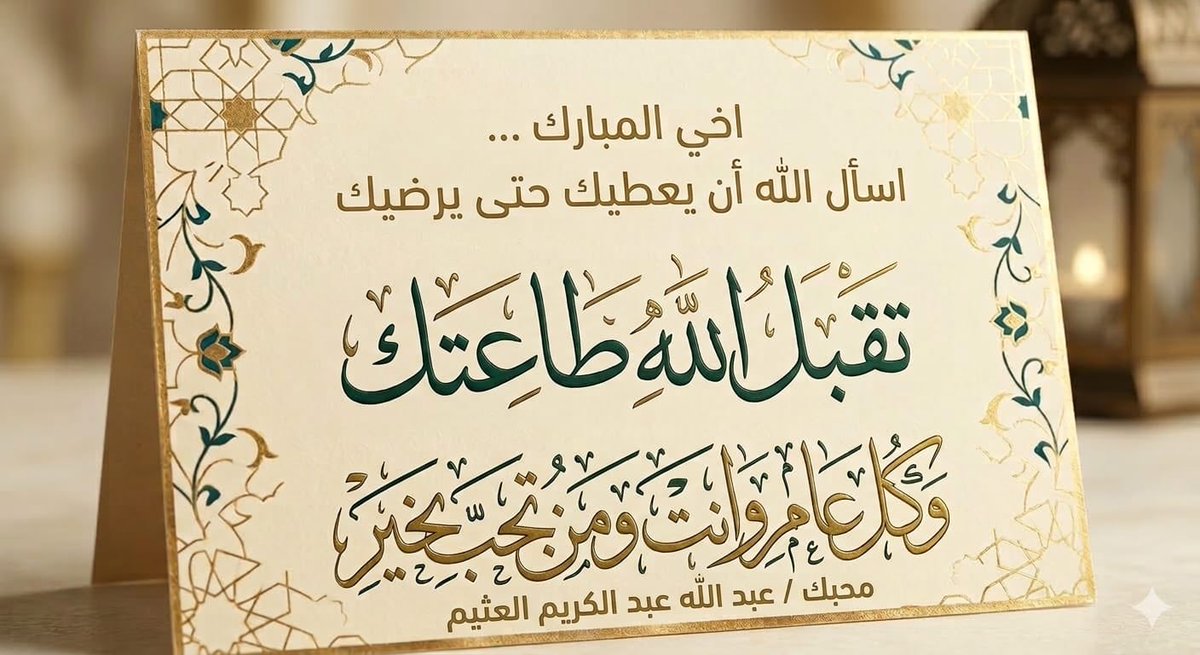 اخي المبارك ...
اسأل الله أن يعطيك حتى يرضيك
تقبل الله طاعتك
وكل عام وانت ومن تحب بخير
محبك / عبد الله عبد الكريم العثيم